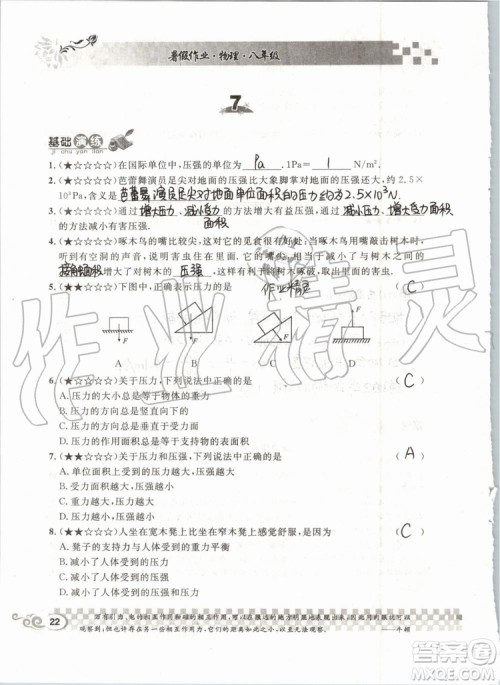 暑假作业·物理·八年级
7
基础演练
ji chu yan lian
1. (★☆☆☆☆)在国际单位中，压强的单位是 Pa ，1Pa= 1 N/m².
2. (★☆☆☆☆)芭蕾舞演员足尖对地面的压强比大象脚掌对地面的压强还大，约 2.5×
10⁵Pa，含义是 芭蕾舞演员足尖对地面单位面积的压力为2.5×10⁵N.
3. (★☆☆☆☆)通过 增大压力、减小受力面积 的方法增大有益压强，通过 减小压力、增大受力面积
的方法减小有害压强.
4. (★☆☆☆☆)啄木鸟的嘴比较尖，这对它的觅食很有好处.当啄木鸟用嘴敲击树木时，
听到有空洞的声音，发现有害虫后，就会用尖嘴把树木啄破，尖嘴减小了与树木的
接触面积，增大了对树木的 压强 ，容易将树木啄破.
5. (★☆☆☆☆)下图中，正确表示压力的是 ( C )
作业精灵
F F F F
A B C D
6. (★☆☆☆☆)关于压力，下列说法中正确的是 ( C )
A. 压力的大小总等于物体的重力
B. 压力的方向总是向下
C. 压力的方向总是垂直于支持面
D. 压力的作用面积总是等于支持物的表面积
7. (★★☆☆☆)关于压力和压强，下列说法正确的是 ( A )
A. 单位面积上受到的压力越大，压强越大
B. 物体的受力面积越小，压强越大
C. 压力越大，压强越大
D. 压强越小，压力越小
8. (★★☆☆☆)人坐在宽木凳上比坐在窄木凳上感觉舒服，是因为 ( C )
A. 凳子的支持力与人的体重相互抵消
B. 减小了人体受到的压力
C. 减小了人体受到的压强
D. 减小了人体受到的压力和压强
22
作业精灵